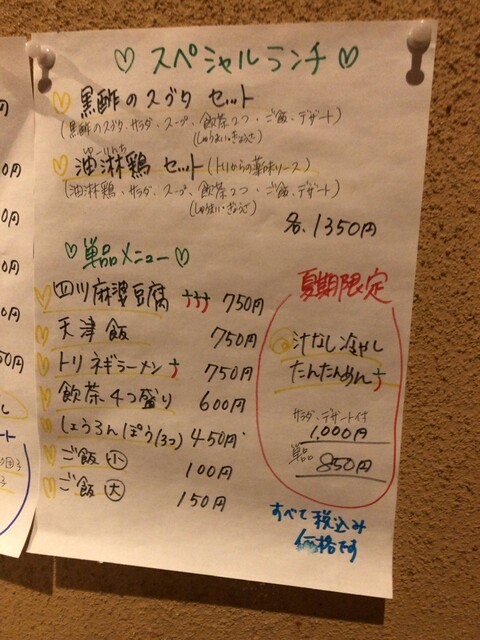 スペシャルランチ
黒酢のスブタ セット
(黒酢のスブタ、サラダ、スープ、飲茶2つ、ご飯、デザート)
(しゅうまい・ぎょうざ)
ゆーりんち
油淋鶏 セット(トリからの薬味ソース)
(油淋鶏、サラダ、スープ、飲茶2つ、ご飯、デザート)
(しゅうまい・ぎょうざ)
各、1350円
単品メニュー
四川麻婆豆腐 750円
天津飯 750円
トリネギラーメン 750円
飲茶4つ盛り 600円
しょうろんぽう(3コ) 450円
ご飯 小 100円
ご飯 大 150円
夏期限定
汁なし冷やし
たんたんめん
サラダ、デザート付
1,000円
単品 850円
すべて税込み
価格です